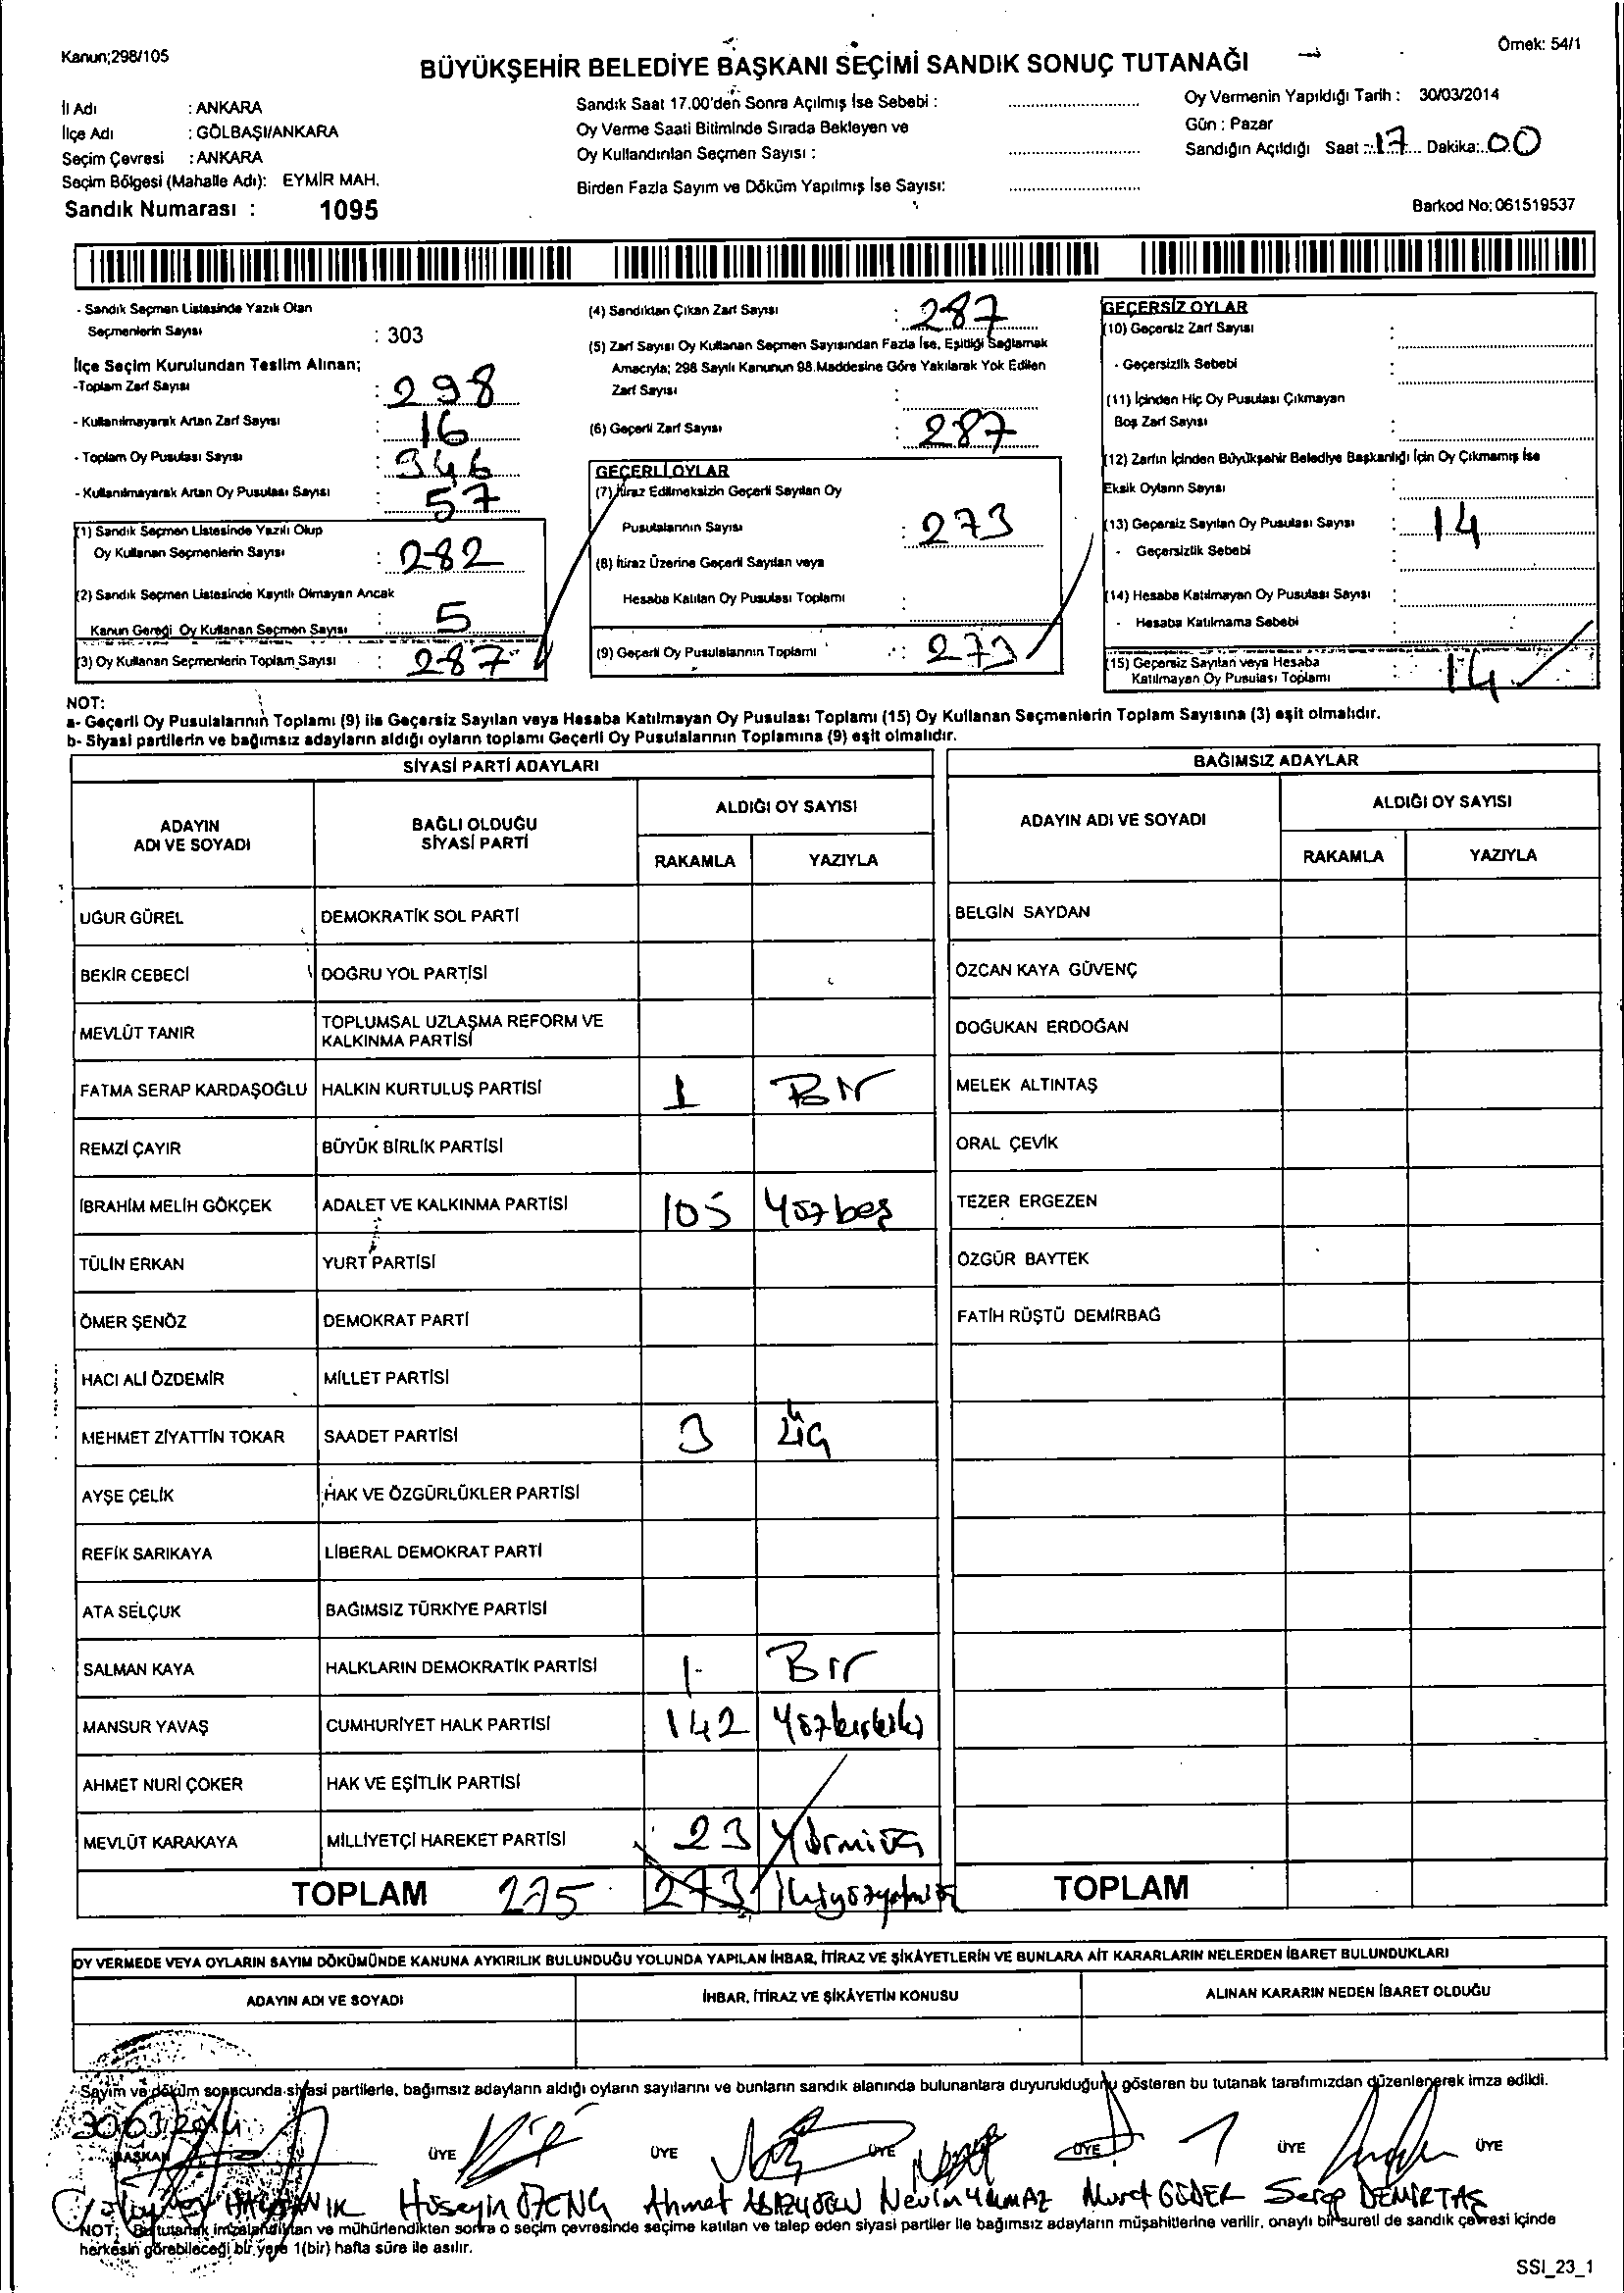 Kanun;298/105
Örnek: 54/1
BÜYÜKŞEHİR BELEDİYE BAŞKANI SEÇİMİ SANDIK SONUÇ TUTANAĞI
İl Adı : ANKARA
İlçe Adı : GÖLBAŞI/ANKARA
Seçim Çevresi : ANKARA
Seçim Bölgesi (Mahalle Adı): EYMİR MAH.
Sandık Numarası : 1095
Sandık Saat 17.00'den Sonra Açılmış İse Sebebi :
Oy Verme Saati Bitiminde Sırada Bekleyen ve
Oy Kullandırılan Seçmen Sayısı :
Birden Fazla Sayım ve Döküm Yapılmış İse Sayısı:
Oy Vermenin Yapıldığı Tarih : 30/03/2014
Gün : Pazar
Sandığın Açıldığı Saat : 17 Dakika: 00
Barkod No: 061519537
- Sandık Seçmen Listesinde Yazılı Olan
Seçmenlerin Sayısı : 303
İlçe Seçim Kurulundan Teslim Alınan;
-Toplam Zarf Sayısı : 298
- Kullanılmayarak Artan Zarf Sayısı : 16
- Toplam Oy Pusulası Sayısı : 346
- Kullanılmayarak Artan Oy Pusulası Sayısı : 57
(1) Sandık Seçmen Listesinde Yazılı Olup
Oy Kullanan Seçmenlerin Sayısı : 282
(2) Sandık Seçmen Listesinde Kayıtlı Olmayan Ancak
Kanun Gereği Oy Kullanan Seçmen Sayısı : 5
(3) Oy Kullanan Seçmenlerin Toplam Sayısı : 287
(4) Sandıktan Çıkan Zarf Sayısı : 287
(5) Zarf Sayısı Oy Kullanan Seçmen Sayısından Fazla İse, Eşitliği Sağlamak
Amacıyla; 298 Sayılı Kanunun 98.Maddesine Göre Yakılarak Yok Edilen
Zarf Sayısı :
(6) Geçerli Zarf Sayısı : 287
GEÇERLİ OYLAR
(7) İtiraz Edilmeksizin Geçerli Sayılan Oy
Pusulalarının Sayısı : 273
(8) İtiraz Üzerine Geçerli Sayılan veya
Hesaba Katılan Oy Pusulası Toplamı :
(9) Geçerli Oy Pusulalarının Toplamı : 273
GEÇERSİZ OYLAR
(10) Geçersiz Zarf Sayısı :
- Geçersizlik Sebebi :
(11) İçinden Hiç Oy Pusulası Çıkmayan
Boş Zarf Sayısı :
(12) Zarfın İçinden Büyükşehir Belediye Başkanlığı İçin Oy Çıkmamış İse
Eksik Oyların Sayısı :
(13) Geçersiz Sayılan Oy Pusulası Sayısı : 14
- Geçersizlik Sebebi :
(14) Hesaba Katılmayan Oy Pusulası Sayısı :
- Hesaba Katılmama Sebebi :
(15) Geçersiz Sayılan veya Hesaba
Katılmayan Oy Pusulası Toplamı : 14
NOT:
a- Geçerli Oy Pusulalarının Toplamı (9) ile Geçersiz Sayılan veya Hesaba Katılmayan Oy Pusulası Toplamı (15) Oy Kullanan Seçmenlerin Toplam Sayısına (3) eşit olmalıdır.
b- Siyasi partilerin ve bağımsız adayların aldığı oyların toplamı Geçerli Oy Pusulalarının Toplamına (9) eşit olmalıdır.
SİYASİ PARTİ ADAYLARI
ADAYIN ADI VE SOYADI
BAĞLI OLDUĞU SİYASİ PARTİ
ALDIĞI OY SAYISI
RAKAMLA YAZIYLA
UĞUR GÜREL DEMOKRATİK SOL PARTİ
BEKİR CEBECİ DOĞRU YOL PARTİSİ
MEVLÜT TANIR TOPLUMSAL UZLAŞMA REFORM VE KALKINMA PARTİSİ
FATMA SERAP KARDAŞOĞLU HALKIN KURTULUŞ PARTİSİ 1 Bir
REMZİ ÇAYIR BÜYÜK BİRLİK PARTİSİ
İBRAHİM MELİH GÖKÇEK ADALET VE KALKINMA PARTİSİ 105 Yüzbeş
TÜLİN ERKAN YURT PARTİSİ
ÖMER ŞENÖZ DEMOKRAT PARTİ
HACI ALİ ÖZDEMİR MİLLET PARTİSİ
MEHMET ZİYATTİN TOKAR SAADET PARTİSİ 3 Üç
AYŞE ÇELİK HAK VE ÖZGÜRLÜKLER PARTİSİ
REFİK SARIKAYA LİBERAL DEMOKRAT PARTİ
ATA SELÇUK BAĞIMSIZ TÜRKİYE PARTİSİ
SALMAN KAYA HALKLARIN DEMOKRATİK PARTİSİ 1 Bir
MANSUR YAVAŞ CUMHURİYET HALK PARTİSİ 142 Yüzkırkiki
AHMET NURİ ÇOKER HAK VE EŞİTLİK PARTİSİ
MEVLÜT KARAKAYA MİLLİYETÇİ HAREKET PARTİSİ 23 Yirmiüç
TOPLAM 275 273
BAĞIMSIZ ADAYLAR
ADAYIN ADI VE SOYADI
ALDIĞI OY SAYISI
RAKAMLA YAZIYLA
BELGİN SAYDAN
ÖZCAN KAYA GÜVENÇ
DOĞUKAN ERDOĞAN
MELEK ALTINTAŞ
ORAL ÇEVİK
TEZER ERGEZEN
ÖZGÜR BAYTEK
FATİH RÜŞTÜ DEMİRBAĞ
TOPLAM
OY VERMEDE VEYA OYLARIN SAYIM DÖKÜMÜNDE KANUNA AYKIRILIK BULUNDUĞU YOLUNDA YAPILAN İHBAR, İTİRAZ VE ŞİKÂYETLERİN VE BUNLARA AİT KARARLARIN NELERDEN İBARET BULUNDUKLARI
ADAYIN ADI VE SOYADI İHBAR, İTİRAZ VE ŞİKÂYETİN KONUSU ALINAN KARARIN NEDEN İBARET OLDUĞU
Sayım ve döküm sonucunda siyasi partilerle, bağımsız adayların aldığı oyların sayılarını ve bunların sandık alanında bulunanlara duyurulduğunu gösteren bu tutanak tarafımızdan düzenlenerek imza edildi.
30.03.2014
BAŞKAN ÜYE ÜYE ÜYE ÜYE ÜYE ÜYE
Hüseyin ÖZENÇ Ahmet Nevin YILMAZ Murat GÜDER Serap DEMİRTAŞ
NOT; Bu tutanak imzalandıktan ve mühürlendikten sonra o seçim çevresinde seçime katılan ve talep eden siyasi partiler ile bağımsız adayların müşahitlerine verilir, onaylı bir sureti de sandık çevresi içinde
herkesin görebileceği bir yere 1(bir) hafta süre ile asılır.
SSI_23_1